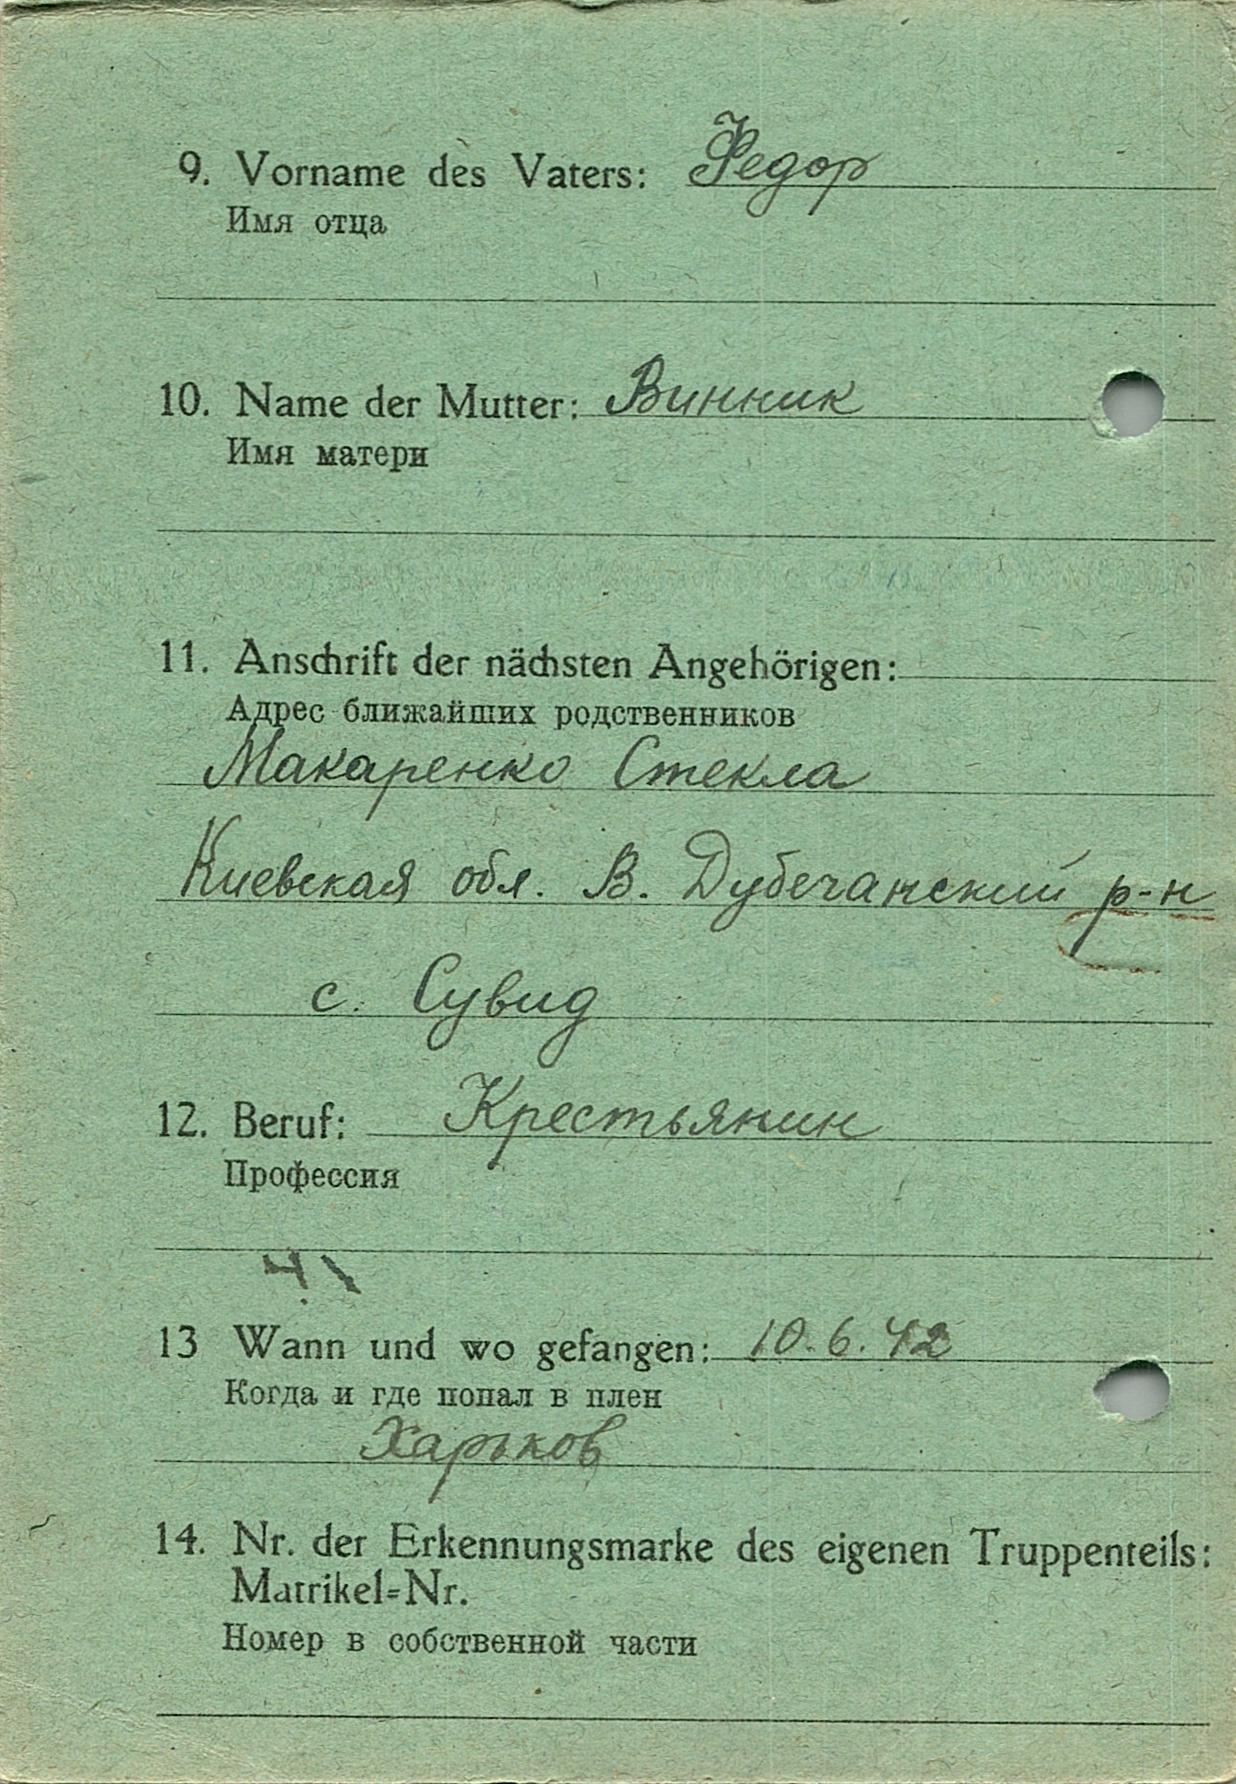 9. Vorname des Vaters: Федор
Имя отца
10. Name der Mutter: Винник
Имя матери
11. Anschrift der nächsten Angehörigen:
Адрес ближайших родственников
Макаренко Стекла
Киевская обл. В. Дубечанский р-н
с. Сувид
12. Beruf: Крестьянин
Профессия
13 Wann und wo gefangen: 10.6.42
Когда и где попал в плен
Харьков
14. Nr. der Erkennungsmarke des eigenen Truppenteils:
Matrikel=Nr.
Номер в собственной части